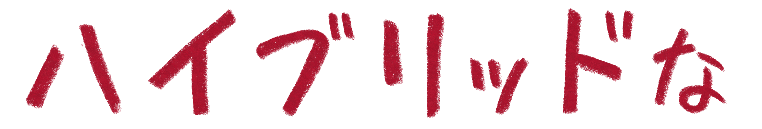 ハイブリッドな